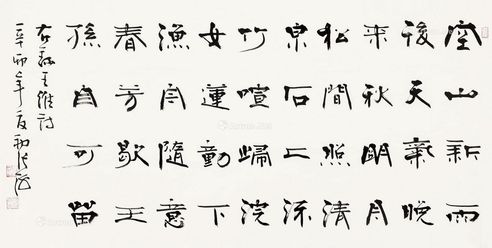 空山新雨
後天氣晚
来秋明月
松間照清
泉石二流
竹喧歸浣
女蓮動下
漁舟隨意
春芳歇王
孫自可留
右録王維詩
年夏初